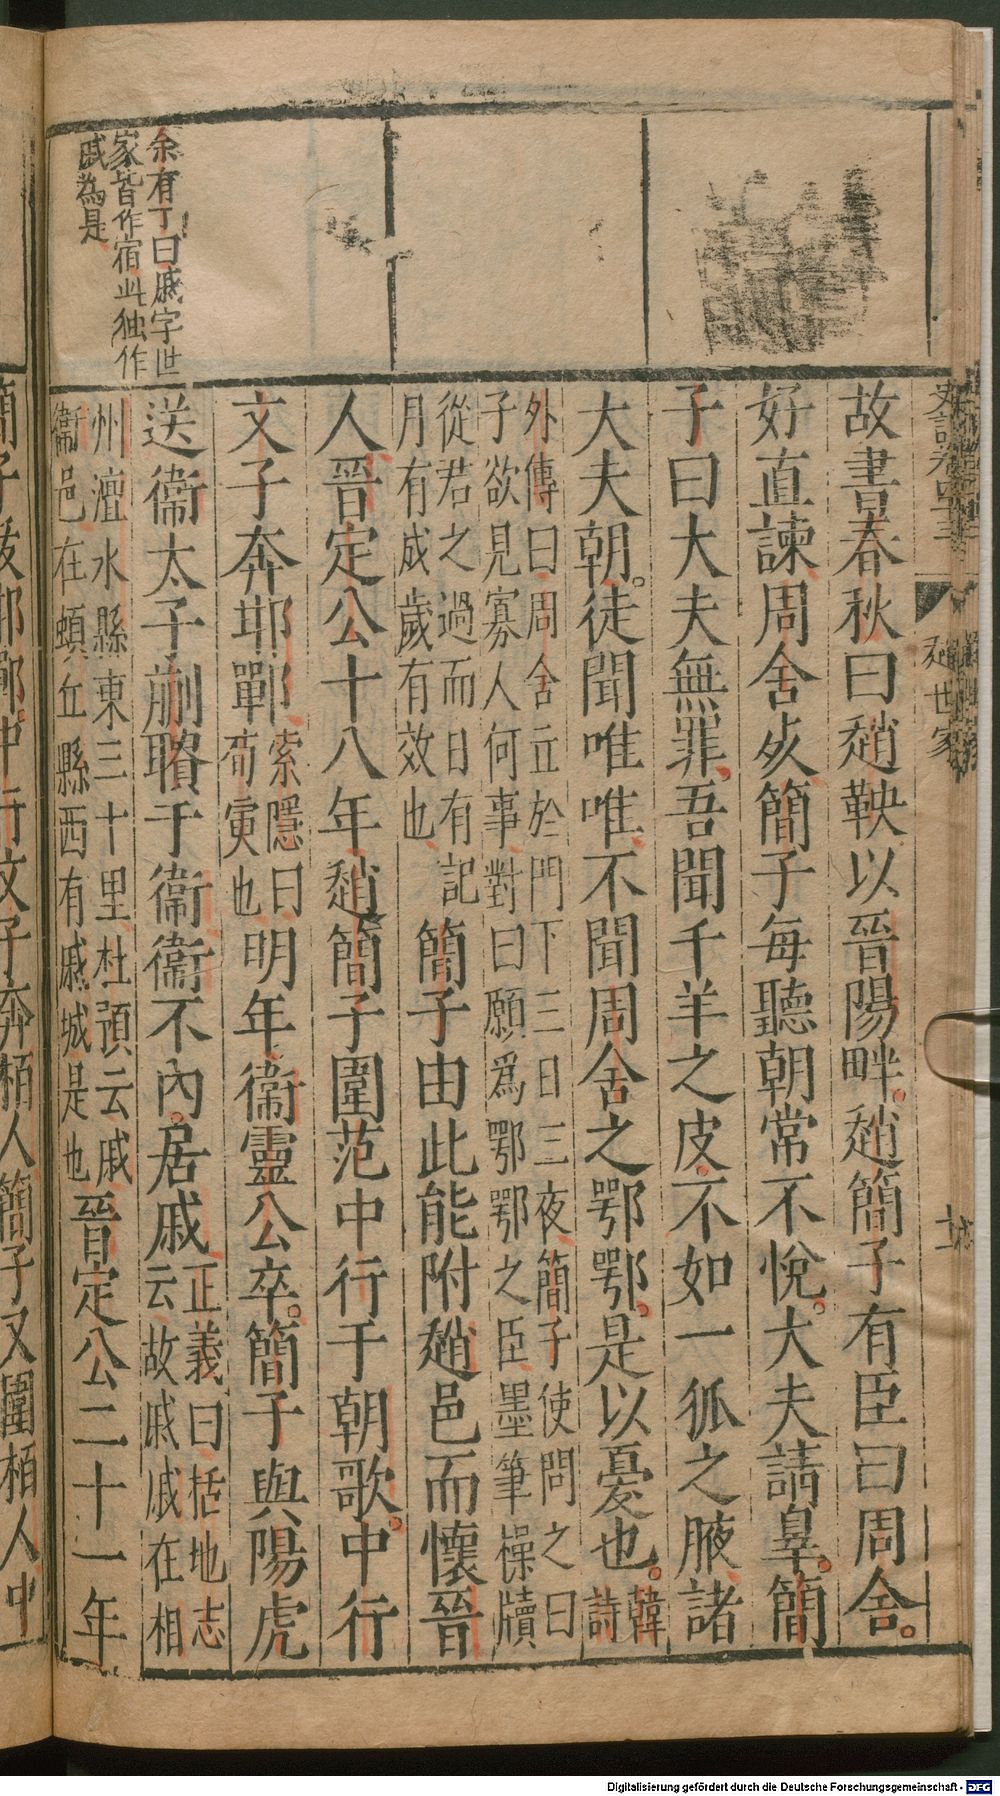 故書春秋曰趙鞅以晉陽畔。趙簡子有臣曰周舍。
好直諫周舍死簡子每聽朝常不悅。大夫請辠。簡
子曰大夫無罪吾聞千羊之皮不如一狐之腋諸
大夫朝。徒聞唯唯不聞周舍之鄂鄂。是以憂也。韓詩
外傳曰周舍立於門下三日三夜簡子使問之曰
子欲見寡人何事對曰願爲鄂鄂之臣墨筆操牘
從君之過而日有記
月有成歲有效也
簡子由此能附趙邑而懷晉
人晉定公十八年趙簡子圍范中行于朝歌。中行
文子奔邯鄲
索隱曰
荀寅也
明年衞靈公卒。簡子與陽虎
送衞太子蒯聵于衞衞不內。居戚
正義曰括地志
云故戚戚在相
州澶水縣東三十里杜預云戚
衞邑在頓丘縣西有戚城是也
晉定公二十一年
余有丁曰戚字世
家皆作宿此独作
戚為是
趙世家
簡子拔邯鄲中行文子奔栢人簡子又圍栢人中
Digitalisierung gefördert durch die Deutsche Forschungsgemeinschaft - DFG